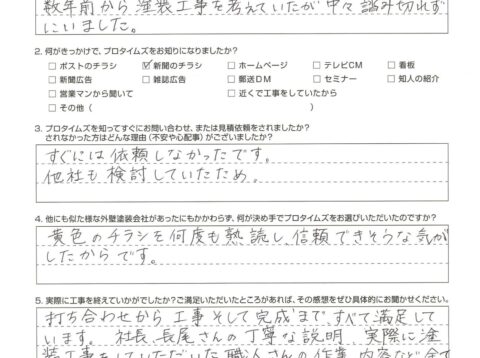 数年前から塗装工事を考えていたが中々踏み切れず
にいました。
2. 何がきっかけで、プロタイムズをお知りになりましたか?
□ ポストのチラシ ☑ 新聞のチラシ □ ホームページ □ テレビCM □ 看板
□ 新聞広告 □ 雑誌広告 □ 郵送DM □ セミナー □ 知人の紹介
□ 営業マンから聞いて □ 近くで工事をしていたから
□ その他 (
3. プロタイムズを知ってすぐにお問い合わせ、または見積依頼をされましたか?
されなかった方はどんな理由(不安や心配事)がございましたか?
すぐには依頼しなかったです。
他社も検討していたため。
4. 他にも似た様な外壁塗装会社があったにもかかわらず、何が決め手でプロタイムズをお選びいただいたのですか?
黄色のチラシを何度も熟読し、信頼できそうな気が
したからです。
5. 実際に工事を終えていかがでしたか?ご満足いただいたところがあれば、その感想をぜひ具体的にお聞かせください。
打ち合わせから工事そして完成まですべて満足して
います。社長、長尾さんの丁寧な説明、実際に塗
装工事をしていただいた職人さんの作業内容など全て